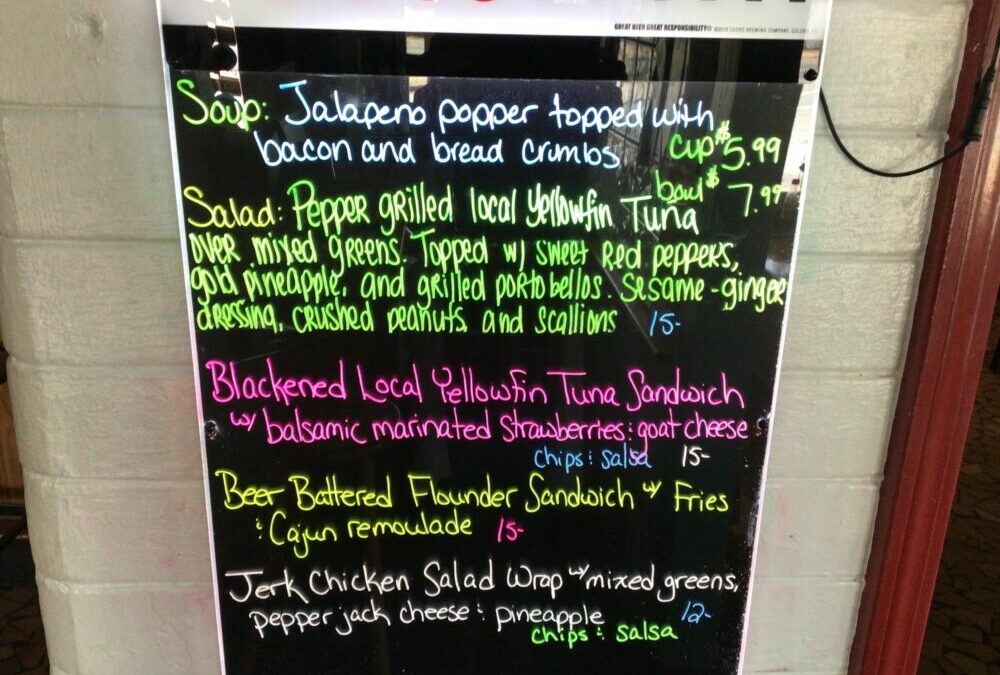 GREAT BEER GREAT RESPONSIBILITY®
Soup: Jalapeno popper topped with
bacon and bread crumbs cup $5.99
bowl $7.99
Salad: Pepper grilled local Yellowfin Tuna
over mixed greens. Topped w/ sweet Red peppers,
gold pineapple, and grilled portobellos. Sesame-ginger
dressing, crushed peanuts, and scallions 15-
Blackened Local Yellowfin Tuna Sandwich
w/ balsamic marinated Strawberries & goat cheese
chips & salsa 15-
Beer Battered Flounder Sandwich w/ Fries
& Cajun remoulade 15-
Jerk Chicken Salad Wrap w/ mixed greens,
pepper jack cheese & pineapple 12-
chips & salsa